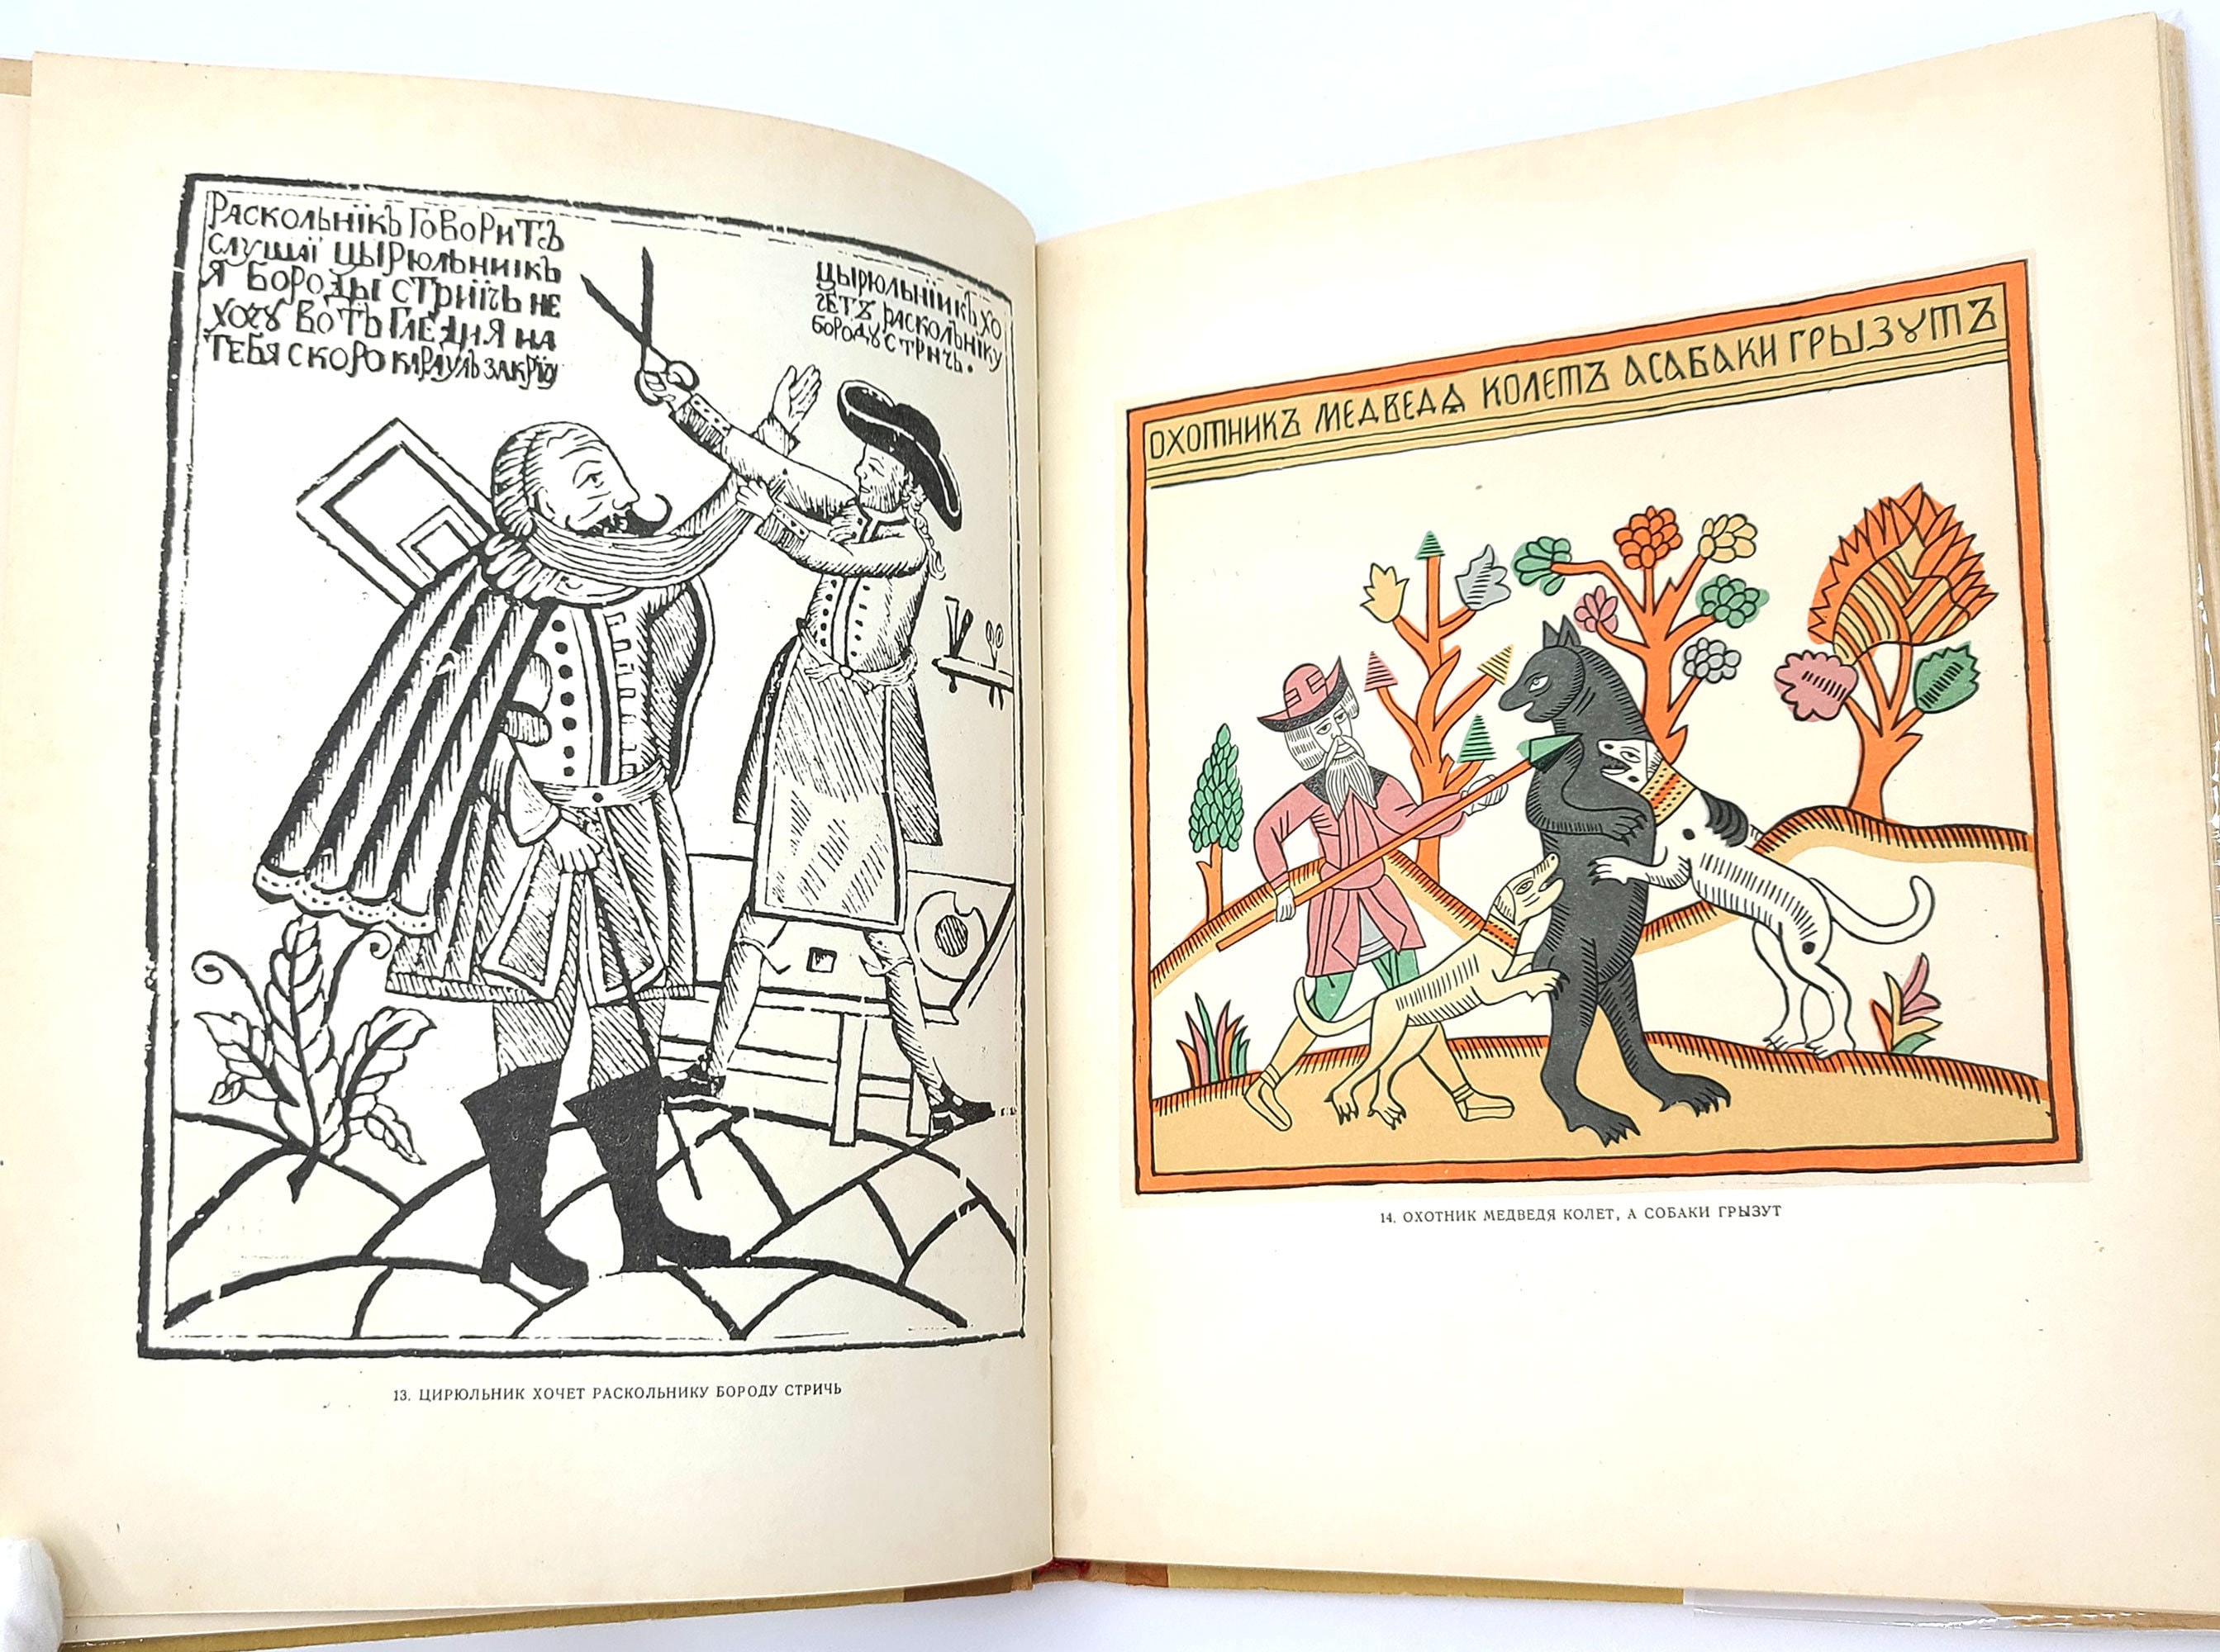 РАСКОЛЬНІКЪ ГОВОРИТЪ
СЛУШАЇ ЦЫРЮЛЬНИІКЪ
Я БОРОДЫ СТРИЇЧЬ НЕ
ХОЧУ ВОТЬ ГЛЕДИЯ НА
ТЕБЯ СКОРО КАРАУЛЬ ЗАКРІЧУ
ЦЫРЮЛЬНІИКЪ ХО
ЧЕТЪ РАСКОЛЬНІКУ
БОРОДУ СТРИЧЬ.
13. ЦИРЮЛЬНИК ХОЧЕТ РАСКОЛЬНИКУ БОРОДУ СТРИЧЬ
ОХОТНИКЪ МЕДВЕДѦ КОЛЕТЪ АСАБАКИ ГРЫЗꙋТЪ
14. ОХОТНИК МЕДВЕДЯ КОЛЕТ, А СОБАКИ ГРЫЗУТ